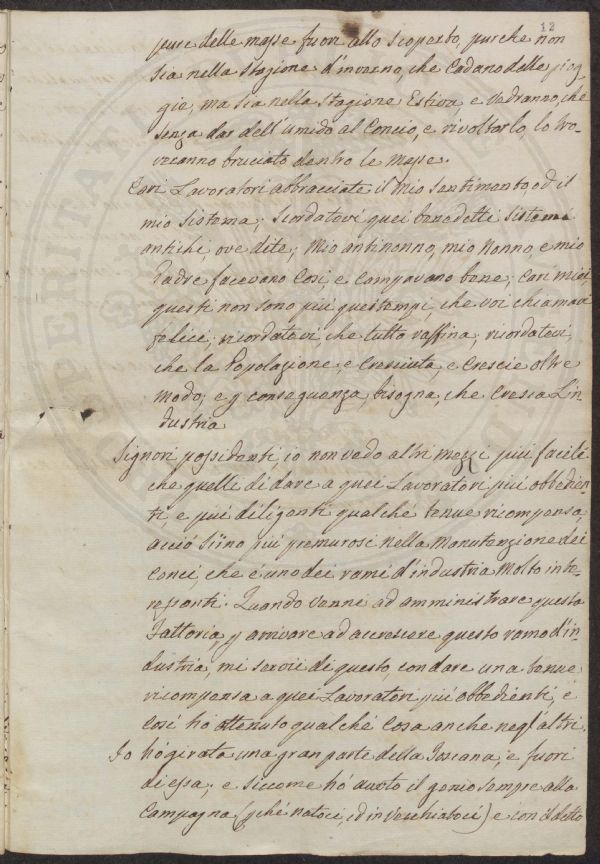 12
pure delle masse fuori allo scoperto, purche non
sia nella stagione d'inverno, che Cadano dalle piog=
gie, ma sia nella stagione Estiva e vedranno, che
senza dar dell'umido al Concio, e rivoltarlo, lo tro-
veranno bruciato dentro le Masse.
Cari Lavoratori abbracciate il mio sentimento, ed il
mio sistema; scordatevi quei benedetti sistemi
antichi, ove dite; Mio antinonno, mio Nonno, e mio
Padre facevano Cosi, e Campavano bene; Cari miei,
questi non sono piu quei tempi, che voi chiamavi
felici; ricordatevi, che tutto raffina; ricordatevi,
che la Popolazione, e Cresciuta, e Crescie oltre
modo; e p conseguenza, bisogna, che Cresca L'in-
dustria
Signori possidenti, io non vedo altri mezzi piú facile
che quelli di dare a quei Lavoratori piú obbedien
ti, e piu diligenti qualché tenue ricompensa,
acció siino piú premurosi nella Manutenzione dei
Conci, che é uno dei rami d'industria Molto inte-
ressanti. Quando venni ad amministrare questa
Fattoria, p arrivare ad accrescere questo ramo d'in
dustria, mi servii di questo, con dare una tenue
ricompensa a quei Lavoratori piú obbedienti, é
Cosí hó ottenuto qualché Cosa anche negl'altri.
Io hó girata una gran parte della Toscana, e fuori
di essa; e siccome hó avuto il genio sempre alla
Campagna (pché natoci, ed invecchiatoci) e con il detto